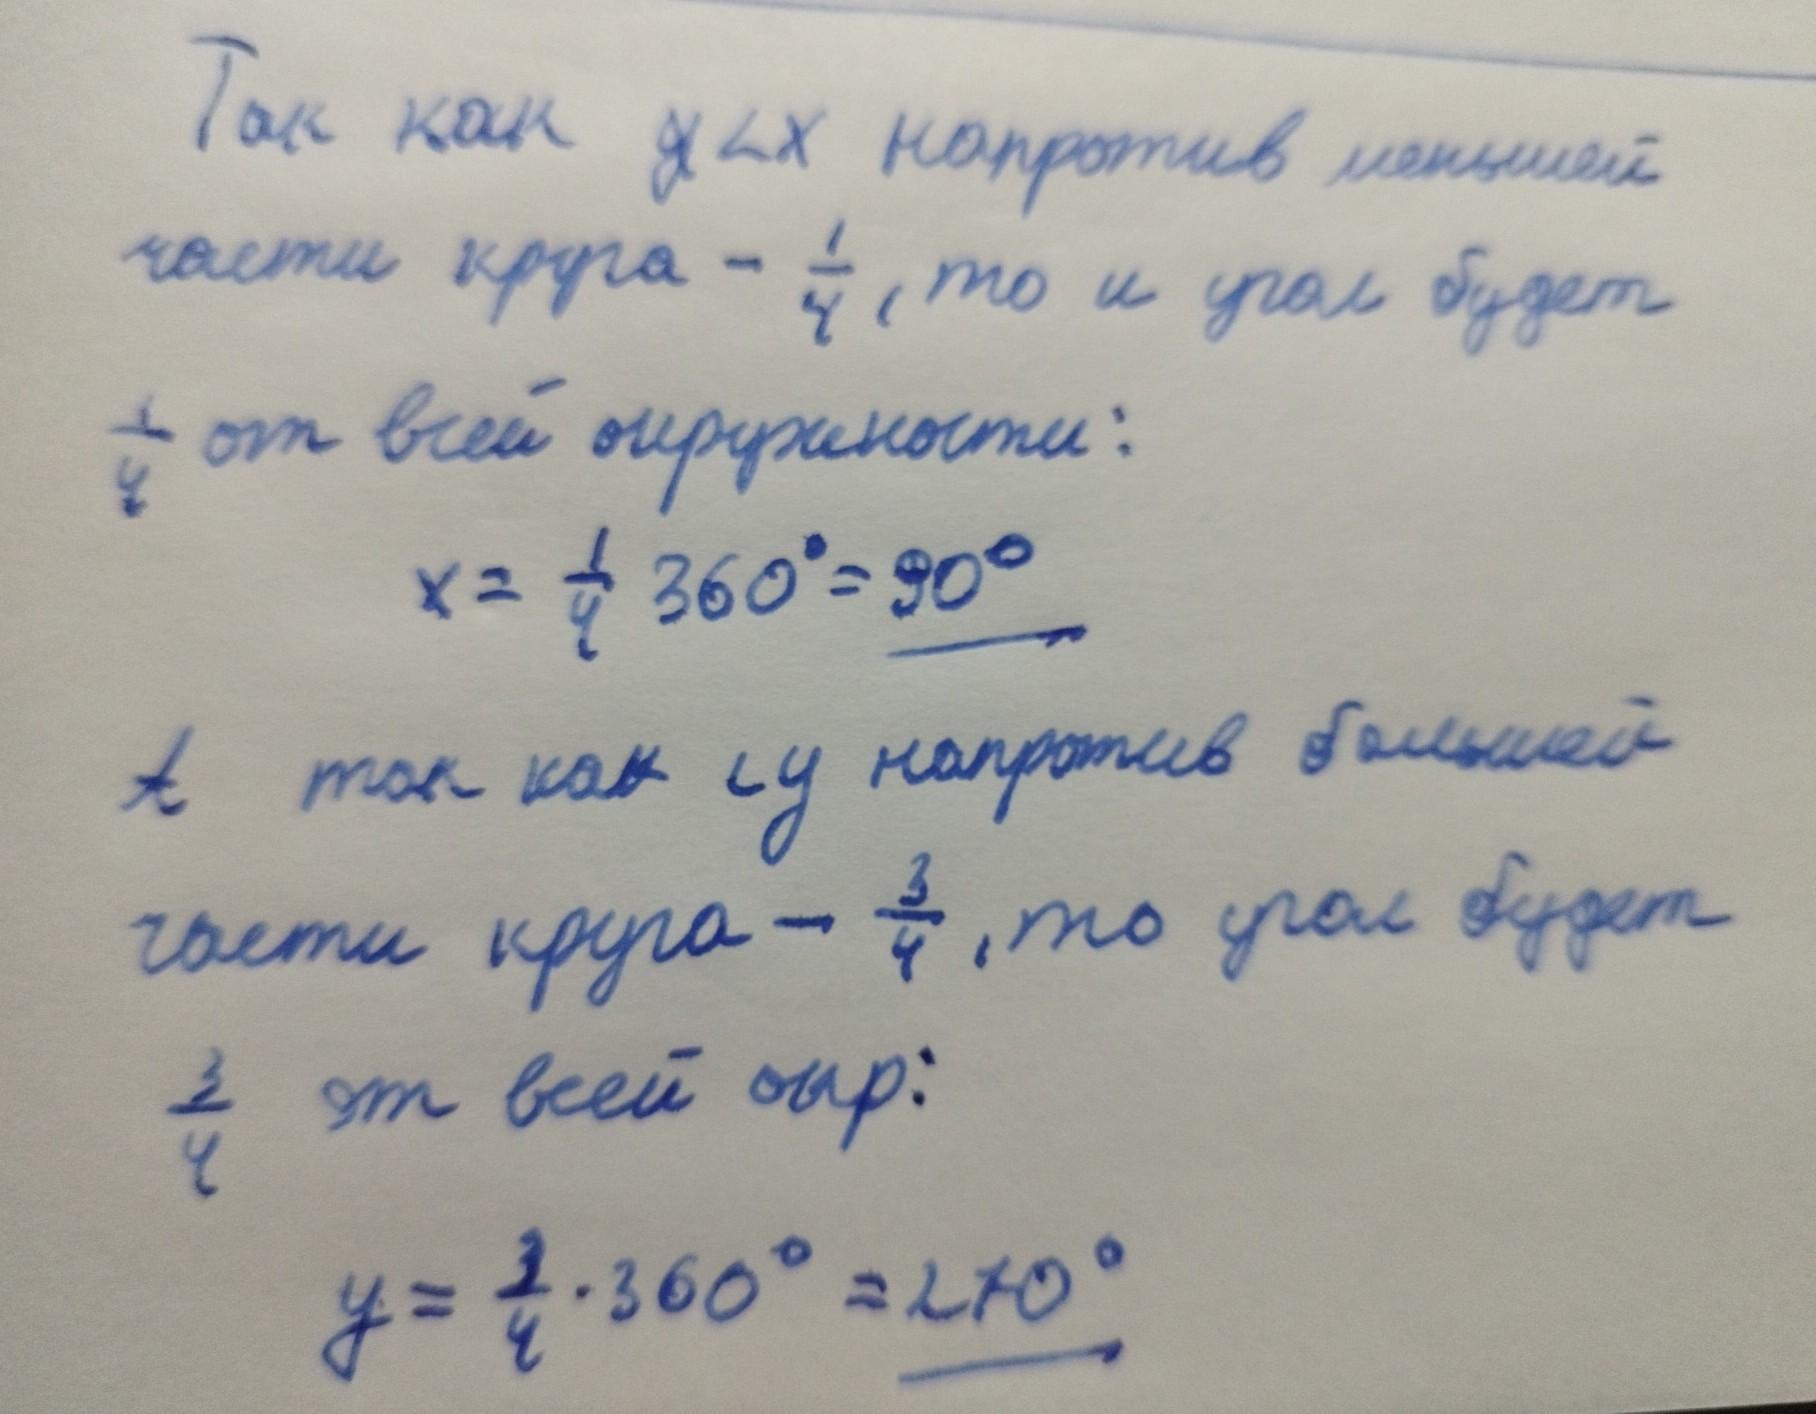 Так как у∠x напротив меньшей
части круга - 1/4, то и угол будет
1/4 от всей окружности:
x = 1/4 360° = 90°
А так как ∠y напротив большей
части круга - 3/4, то угол будет
3/4 от всей окр:
y = 3/4 · 360° = 270°